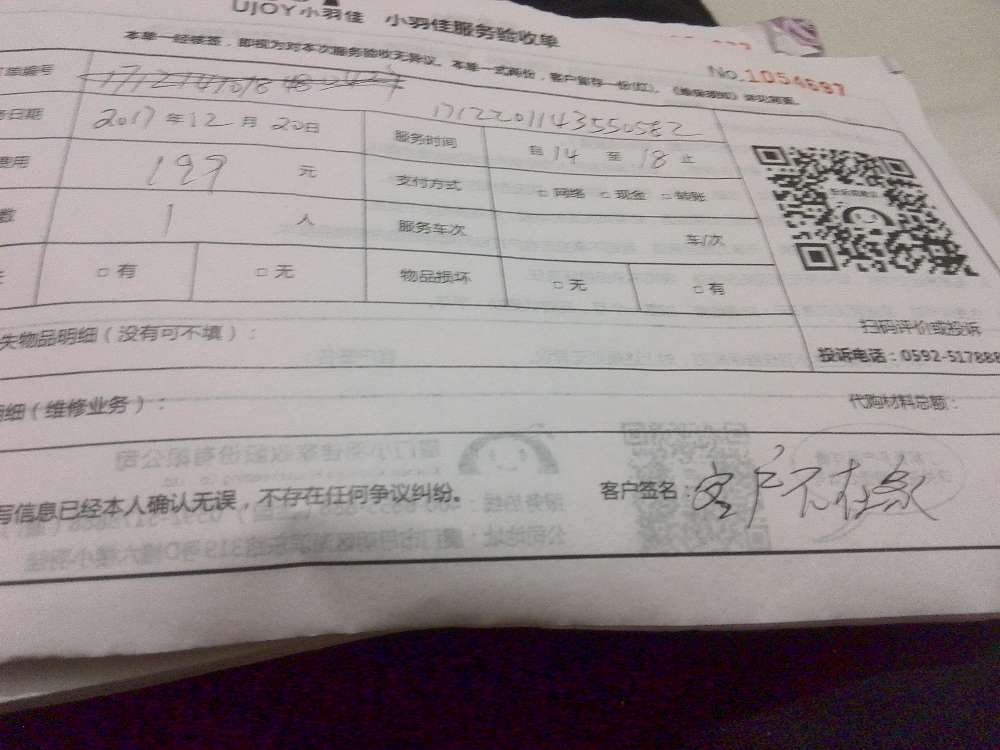 UJOY小羽佳 小羽佳服务验收单
本单一经签签，即视为对本次服务验收无异议。本单一式两份，客户留存一份(红)。
No.1054697
单编号 17122011435505​82
日期 2017年12月20日 服务时间 自14至18止
费用 199 元 支付方式 □网络 □现金 □转账
数 1 人 服务车次 车/次
□有 □无 物品损坏 □无 □有
失物品明细（没有可不填）：
扫码评价或投诉
投诉电话：0592-517888
明细（维修业务）： 代购材料总额：
写信息已经本人确认无误，不存在任何争议纠纷。 客户签名：客户不在家